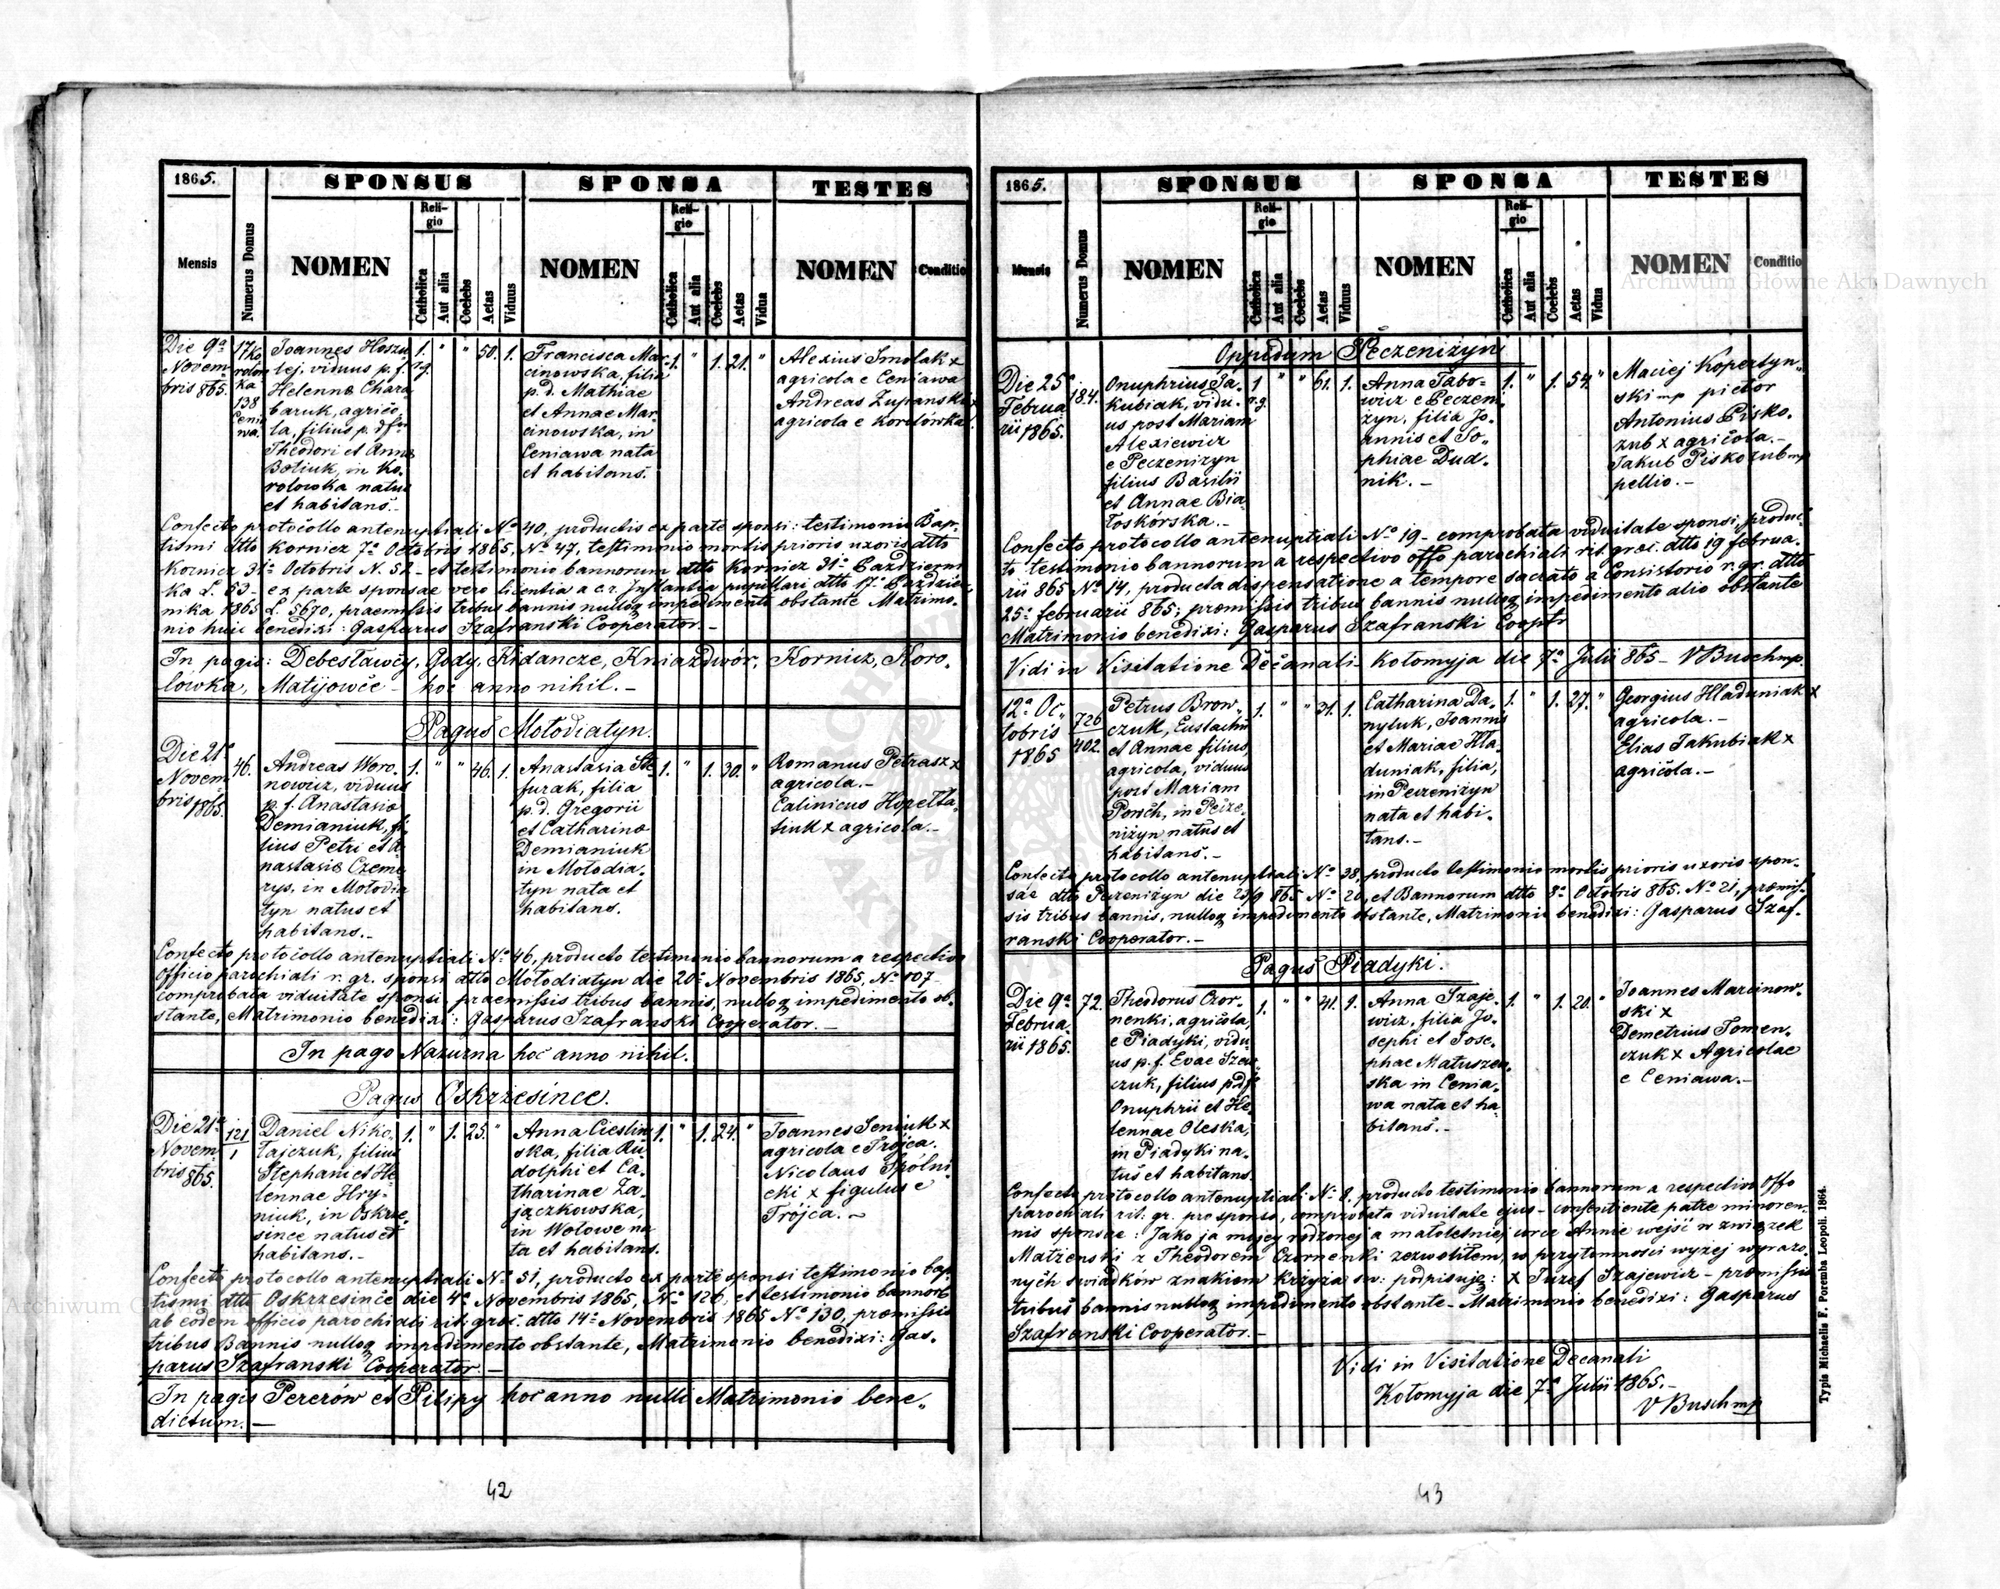 1865.
SPONSUS
SPONSA
TESTES
Mensis
Numerus Domus
NOMEN
Religio
Catholica
Aut alia
Coelebs
Aetas
Viduus
NOMEN
Religio
Catholica
Aut alia
Coelebs
Aetas
Vidua
NOMEN
Conditio
Die 9ª
Novem-
bris 865.
17 Ko
rolow
ka
138
Ceni
wa.
Joannes Hoszu
lej, viduus p. f.
Helenna Chara
baruk, agrico,
la, filius p. df.
Theodori et Anna
Boliuk, in Ko,
rolowka natus
et habitans.
1.
r.g.
"
"
50.
1.
Francisca Mar-
cinowska, filia
p. d. Mathiae
et Annae Mar,
cinowska, in
Ceniawa nata
et habitans.
1.
"
1.
21.
"
Alexius Smolak x
agricola e Ceniawa
Andreas Zupanski x
agricola e Korolówka
Confecto protocollo antenuptiali Nº 40, productis ex parte sponsi: testimonio Bap-
tismi dtto Kornicz 7ª Octobris 1865, Nº 47, testimonio mortis prioris uxoris dtto
Kornicz 31ª Octobris N. 52 - et testimonio bannorum dtto Kornicz 31ª Październi
ka L. 53 - ex parte sponsae vero licentia a c. r. Instantia pupillari dtto 17ª Paździer
nika 1865 L. 5670, praemissis tribus bannis nulloq impedimento obstante Matrimo-
nio huic benedixi: Gasparus Szafranski Cooperator.-
In pagis: Debesławcy, Gody, Kidancze, Kniazdwór, Kornicz, Koro,
lówka, Matyjowce - hoc anno nihil.-
Pagus Mołodiatyn.
Die 21ª
Novem-
bris 1865.
46.
Andreas Woro-
nowicz, viduus
p. f. Anastasia
Demianiuk, fi-
lius Petri et A-
nastasia Czeme
rys, in Mołodia
tyn natus et
habitans.-
1.
"
"
46.
1.
Anastasia Ste
furak, filia
p. d. Gregorii
et Catharina
Demianiuk
in Mołodia-
tyn nata et
habitans.
1.
"
1.
30.
"
Romanus Petrasz x
agricola.-
Calinicus Hopetla-
tiuk x agricola.-
Confecto protocollo antenuptiali Nº 46, producto testimonio bannorum a respectivo
Officio parochiali r. gr. sponsi dtto Mołodiatyn die 20ª Novembris 1865, Nº 107-
comprobata viduitate sponsi, praemissis tribus bannis, nulloq impedimento ob-
stante, Matrimonio benedixi: Gasparus Szafranski Cooperator.-
In pago Nazurna hoc anno nihil.
Pagus Oskrzesince.
Die 21ª
Novem-
bris 865.
121
1
Daniel Niko-
łajczuk, filius
Stephani et He
lennae Hry-
niuk, in Oskrze
since natus et
habitans.-
1.
"
1.
25.
"
Anna Cieslin
ska, filia Ru
dolphi et Ca-
tharinae Za-
jączkowska,
in Wołowe na-
ta et habitans.
1.
"
1.
24.
"
Joannes Seniuk x
agricola e Trójca.
Nicolaus Spólni
cki x figulus e
Trójca.-
Confecto protocollo antenuptiali Nº 51, producto ex parte sponsi testimonio bap-
tismi dtto Oskrzesince die 4ª Novembris 1865, Nº 126, et testimonio bannor
ab eodem officio parochiali rit. graec. dtto 14ª Novembris 1865 Nº 130, præmissis
tribus Bannis nulloq impedimento obstante, Matrimonio benedixi: Gas-
parus Szafranski Cooperator.-
In pagis Pererów et Pilipy hoc anno nulli Matrimonio bene-
dictum.-
42
1865.
SPONSUS
SPONSA
TESTES
Mensis
Numerus Domus
NOMEN
Religio
Catholica
Aut alia
Coelebs
Aetas
Viduus
NOMEN
Religio
Catholica
Aut alia
Coelebs
Aetas
Vidua
NOMEN
Conditio
Oppidum Peczeniżyn
Die 25ª
Februa
rii 1865.
184.
Onuphrius Ja-
kubiak, vidu-
us post Mariam
Alexiewicz
e Peczenizyn
filius Basilii
et Annae Bia
łoskórska.-
1
r.g.
"
"
61.
1.
Anna Tabo-
wicz e Peczeni
żyn, filia Jo-
annis et So-
phiae Dud-
nik.-
1.
"
1.
54.
"
Maciej Kopertyn-
ski mp pictor
Antonius Pisko-
zub x agricola.-
Jakub Piskozub mp
pellio.-
Confecto protocollo antenuptiali Nº 19- comprobata viduitate sponsi, produc-
to testimonio bannorum a respectivo offo parochiali rit. græi. dtto 19 februa-
rii 865 Nº 14, producta dispensatione a tempore sacrato a Consistorio r. gr. dtto
25ª februarii 865; præmissis tribus bannis nulloq impedimento alio obstante
Matrimonio benedixi: Gasparus Szafranski Cooptr
Vidi in Visitatione Decanali- Kołomyja die 7ª Julii 865- VBusch mp.
12ª Oc-
tobris
1865
726
402.
Petrus Brow-
czuk, Eustachii
et Annae filius,
agricola, viduus
post Mariam
Powch, in Pecze-
niżyn natus et
habitans.-
1.
"
"
31.
1.
Catharina Da-
nyluk, Joannis
et Mariae Hla-
duniak, filia,
in Peczeniżyn
nata et habi-
tans.-
1.
"
1.
27.
"
Georgius Hladuniak x
agricola.-
Elias Jakubiak x
agricola.-
Confecto protocollo antenuptiali Nº 38, producto testimonio mortis prioris uxoris spon-
sae dtto Peczeniżyn die 23/9 865 Nº 20, et Bannorum dtto 8ª Octobris 865. Nº 21, præmis-
sis tribus bannis, nulloq impedimento obstante, Matrimonio benedixi: Gasparus Szaf-
ranski Cooperator.-
Pagus Piadyki.
Die 9ª
Februa-
rii 1865.
72.
Theodorus Czor-
nenki, agricola,
e Piadyki, vidu-
us p. f. Evae Szew
czuk, filius pdf.
Onuphrii et He-
lennae Oleska,
in Piadyki na-
tus et habitans
1.
"
"
41.
1.
Anna Szaje-
wicz, filia Jo-
sephi et Jose-
phae Matuszew-
ska in Cenia-
wa nata et ha-
bitans.-
1.
"
1.
20.
"
Joannes Marcinow-
ski x
Demetrius Tomen-
czuk x Agricolae
e Ceniawa.-
Confecto protocollo antenuptiali N. 8, producto testimonio bannorum a respectivo Offo
parochiali rit. gr. pro sponso, comprobata viduitate ejus- consentiente patre minoren-
nis sponsae: Jako ja mojej rodzonej a małoletniej córce Annie wejść w związek
Małżenski z Theodorem Czornenki zezwoliłem, w przytomności wyżej wyrażo-
nych swiadków znakiem krzyża sw: podpisuję: x Jozef Szajewicz- præmissis
tribus bannis nulloq impedimento obstante- Matrimonio benedixi: Gasparus
Szafranski Cooperator.-
Vidi in Visitatione Decanali
Kołomyja die 7ª Julii 1865.-
VBusch mp
Typis Michaelis F. Poremba Leopoli. 1864.
43
Archiwum Główne Akt Dawnych
Archiwum Główne Akt Dawnych